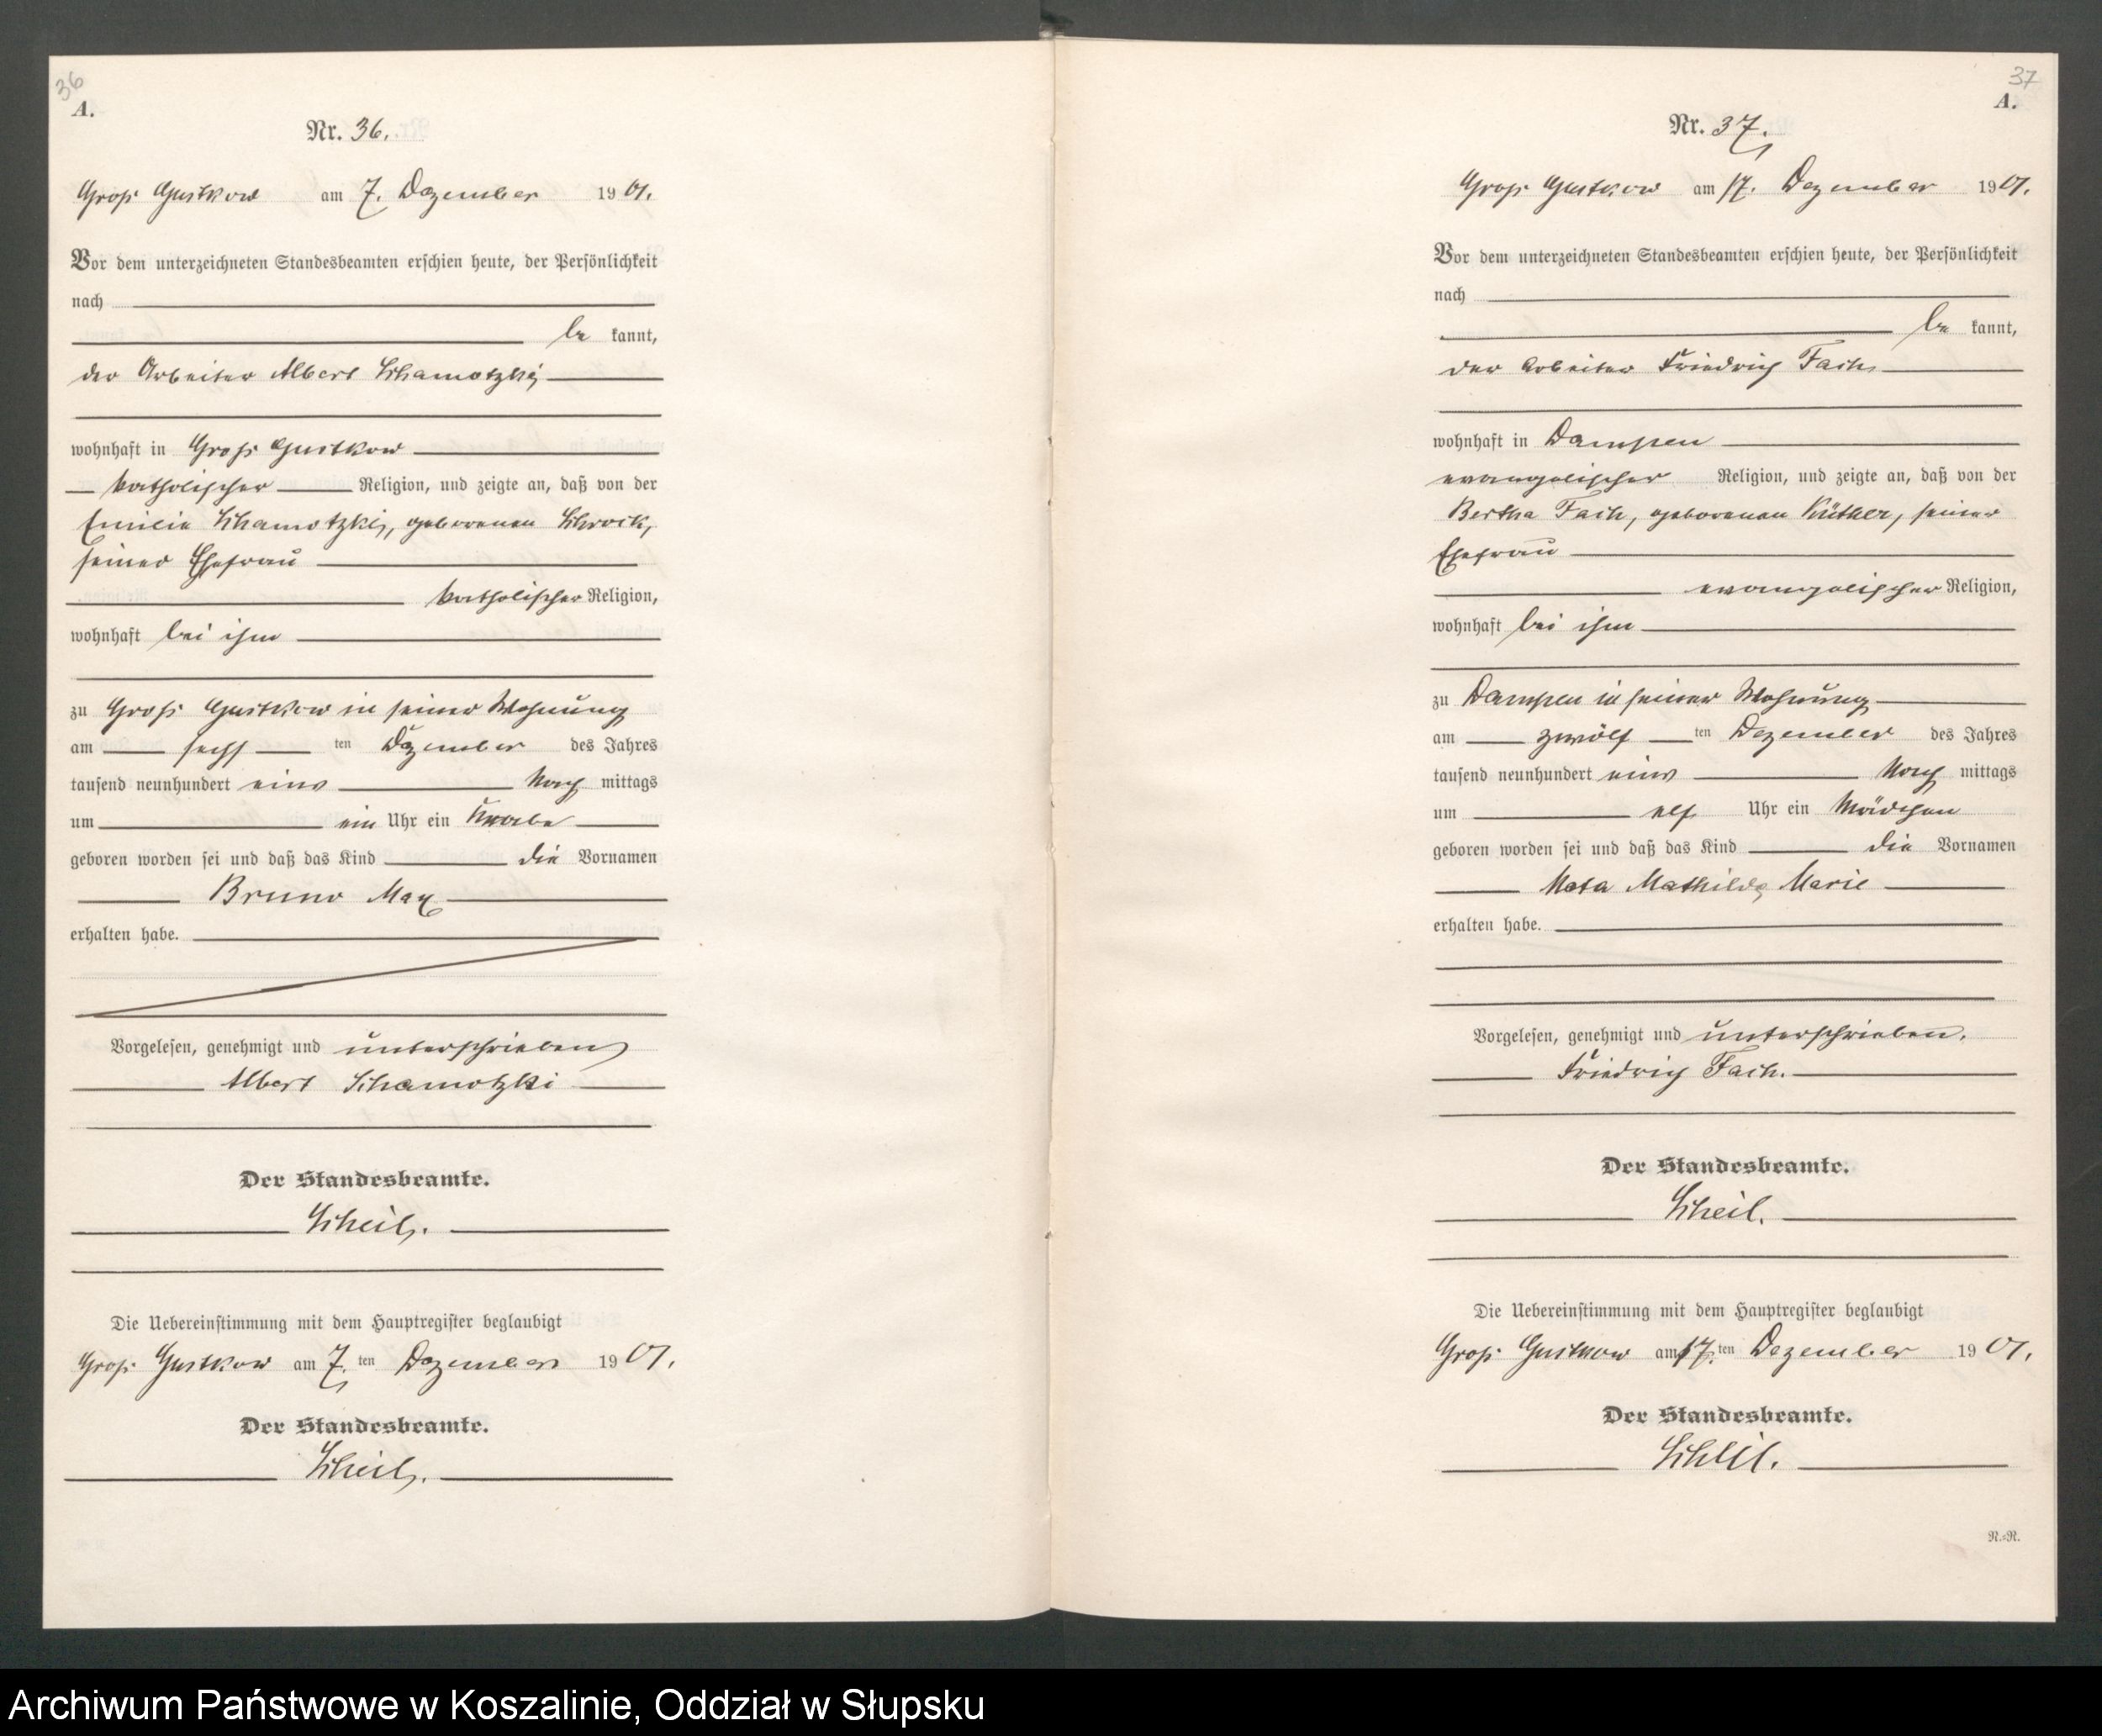 36
A.
Nr. 36.
Groß Gustkow am 7. Dezember 1901.
Vor dem unterzeichneten Standesbeamten erschien heute, der Persönlichkeit
nach
be kannt,
der Arbeiter Albert Schamotzki
wohnhaft in Groß Gustkow
katholischer Religion, und zeigte an, daß von der
Emilie Schamotzki, geborenen Schrock,
seiner Ehefrau
katholischer Religion,
wohnhaft bei ihm
zu Groß Gustkow in seiner Wohnung
am sechs ten Dezember des Jahres
tausend neunhundert eins Nach mittags
um ein Uhr ein Knabe
geboren worden sei und daß das Kind die Vornamen
Bruno Max
erhalten habe.
Vorgelesen, genehmigt und unterschrieben
Albert Schamotzki
Der Standesbeamte.
Scheil.
Die Uebereinstimmung mit dem Hauptregister beglaubigt
Groß Gustkow am 7. ten Dezember 1901.
Der Standesbeamte.
Scheil.
37
A.
Nr. 37.
Groß Gustkow am 17. Dezember 1901.
Vor dem unterzeichneten Standesbeamten erschien heute, der Persönlichkeit
nach
be kannt,
der Arbeiter Friedrich Fach
wohnhaft in Dampen
evangelischer Religion, und zeigte an, daß von der
Bertha Fach, geborenen Küther, seiner
Ehefrau
evangelischer Religion,
wohnhaft bei ihm
zu Dampen in seiner Wohnung
am zwölf ten Dezember des Jahres
tausend neunhundert eins Nach mittags
um elf Uhr ein Mädchen
geboren worden sei und daß das Kind die Vornamen
Meta Mathilde Marie
erhalten habe.
Vorgelesen, genehmigt und unterschrieben.
Friedrich Fach.
Der Standesbeamte.
Scheil.
Die Uebereinstimmung mit dem Hauptregister beglaubigt
Groß Gustkow am 17. ten Dezember 1901.
Der Standesbeamte.
Scheil.
R.=R.
Archiwum Państwowe w Koszalinie, Oddział w Słupsku